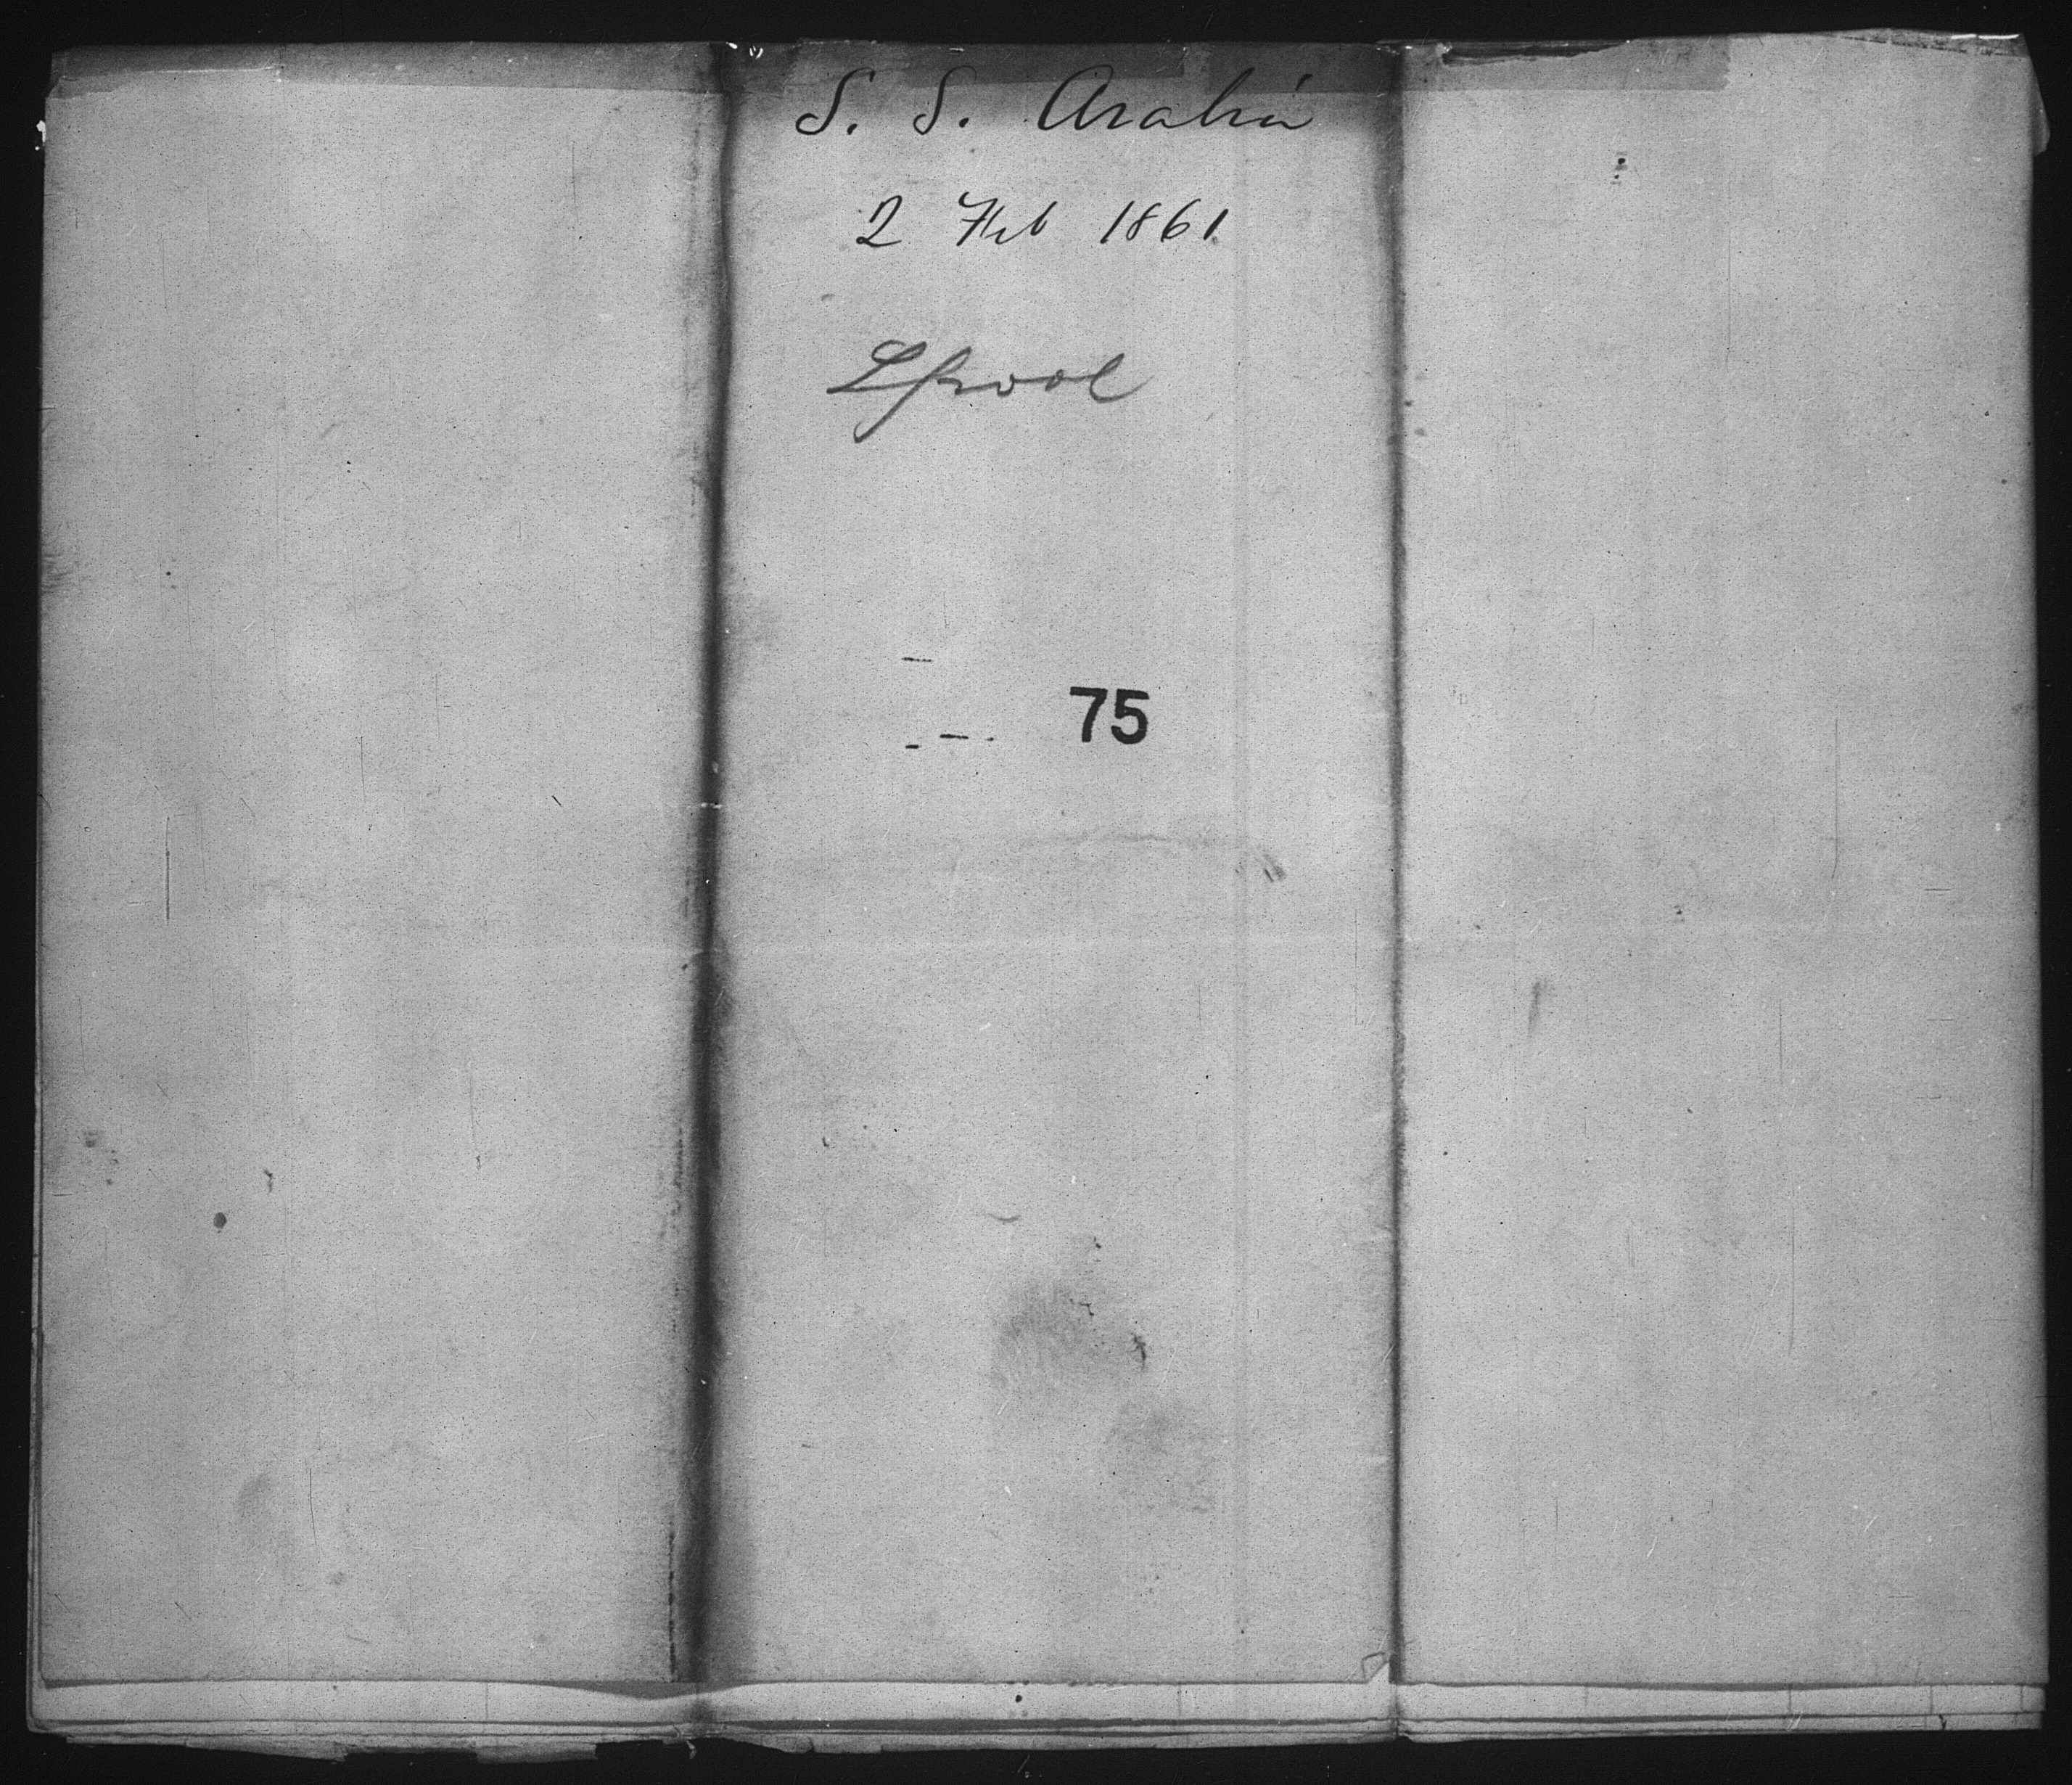 S. S. Arabia
2 Feb 1861
Lpool
75